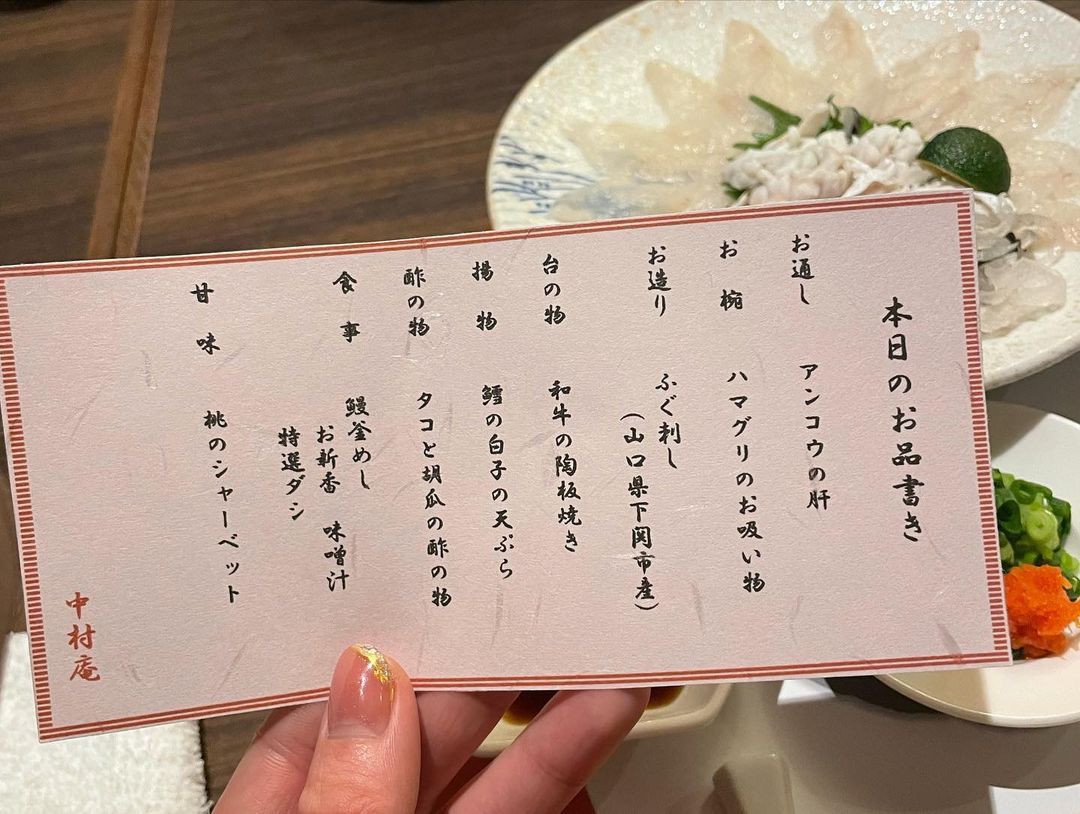 本日のお品書き
お通し アンコウの肝
お椀 ハマグリのお吸い物
お造り ふぐ刺し
(山口県下関市産)
台の物 和牛の陶板焼き
揚物 鱈の白子の天ぷら
酢の物 タコと胡瓜の酢の物
食事 鰻釜めし
お新香 味噌汁
特選ダシ
甘味 桃のシャーベット
中村庵